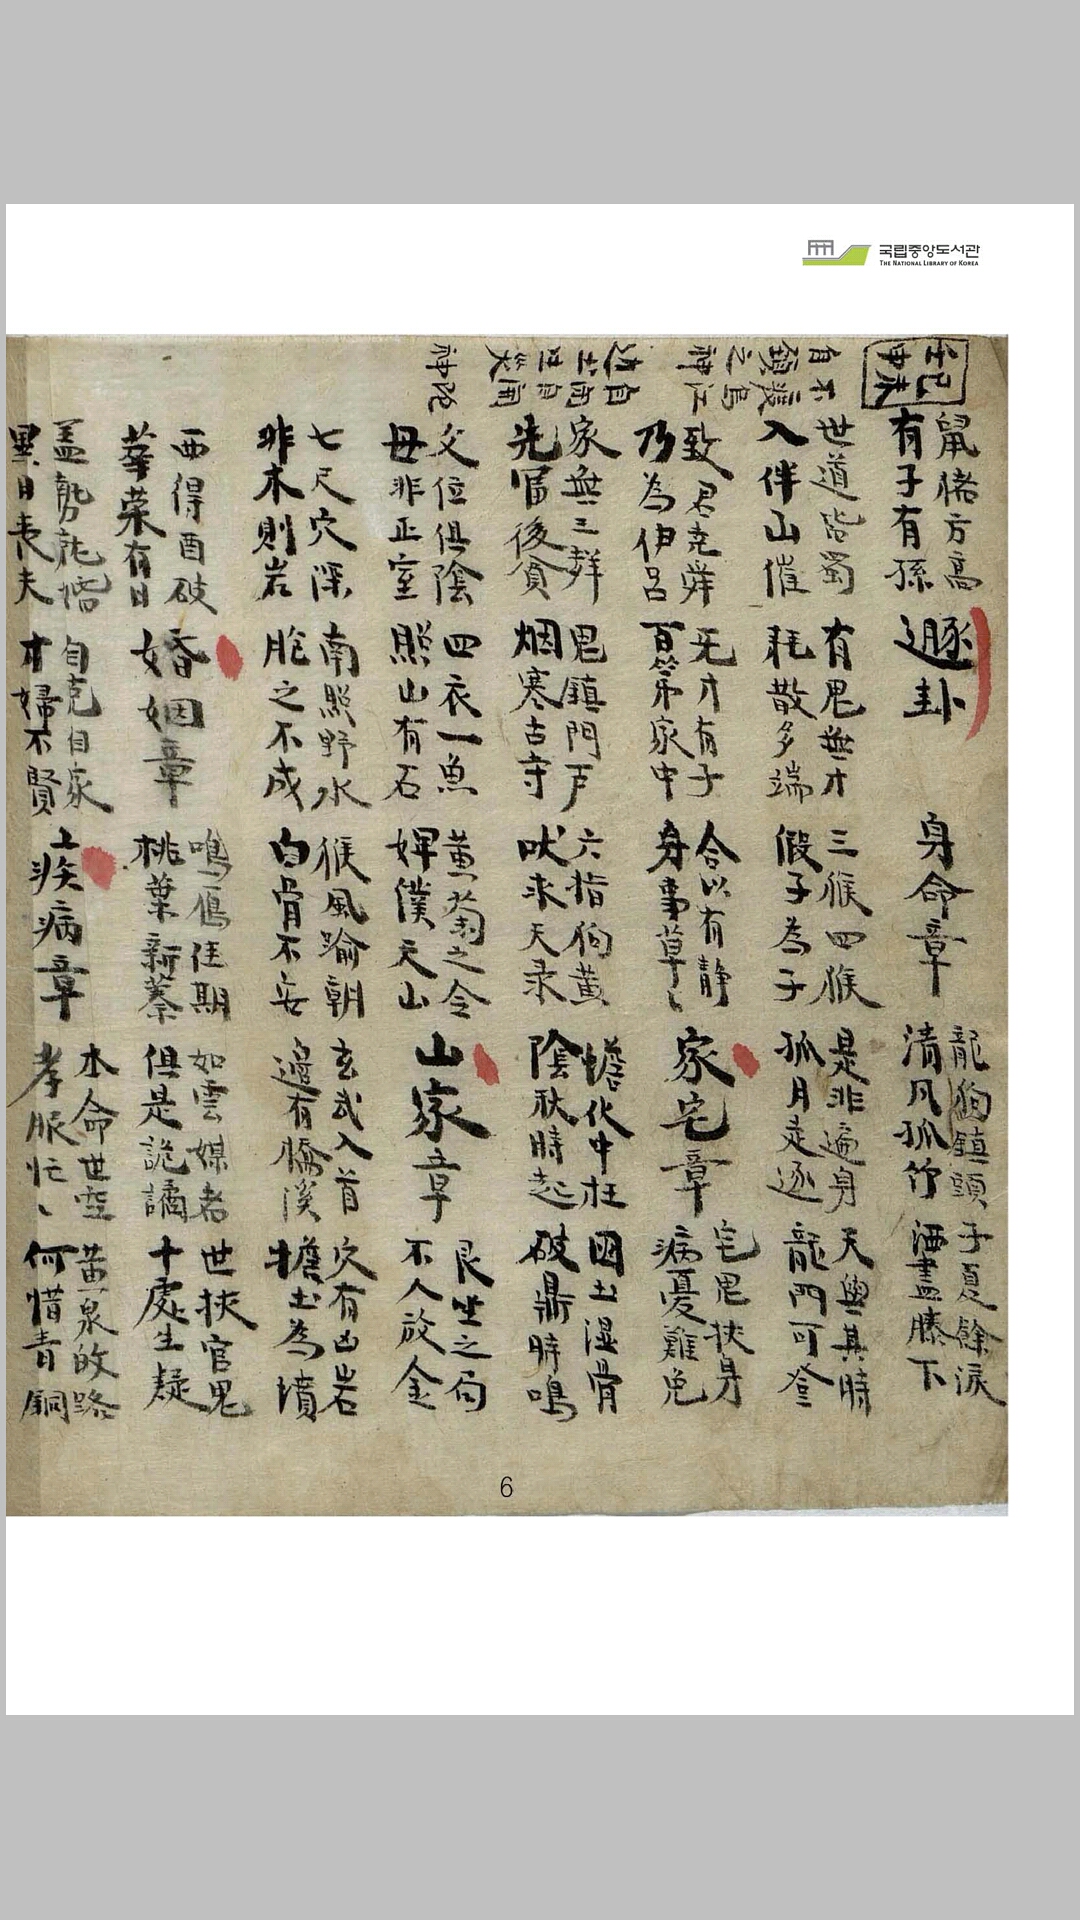 국립중앙도서관
THE NATIONAL LIBRARY OF KOREA
有子有孫
身命章
清風孤竹
龍狗鎮頭
洒盡膝下
子夏餘淚
世道皆蜀
入伴山催
有鬼無才
耗散多端
三猴四猴
假子為子
是非遍身
孤月走逐
天與其時
龍門可登
致君堯舜
乃為伊呂
无才有子
百第家中
合以有静
身事草〻
家宅章
宅鬼挾身
病憂難免
家無三群
先富後貧
鬼鎮門戶
烟寒古寺
六指狗黄
吠来天录
蟾化中柱
陰秋時起
因土湿骨
破鼎時鳴
父位俱陰
母非正室
四衣一魚
照山有石
黄菊之令
婢僕天山
山家章
艮坐之局
不人放金
七尺穴深
非木則岩
南照野水
胞之不成
猴風踰朝
白骨不安
玄武入首
邉有橋溪
穴有凶岩
擔土為墳
西得酉破
華荣有日
婚姻章
鳴鴈佳期
桃葉新蓁
如雲媒者
但是詭譎
世挾官鬼
十處生疑
異日表夫
自克自家
才婦不賢
疾病章
木命世空
孝服忙〻
黄泉故路
何惜青銅
6